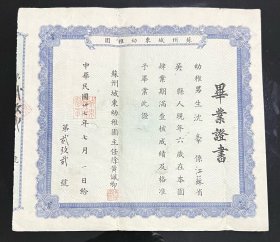 園稚幼東城州蘇
畢業證書
幼稚男生沈 係江蘇省
吳縣人現年六歲在本園
肄業期滿查核成績及格准
予畢業此證
蘇州城東幼稚園主任徐黃
中華民國 七年七月一日給
第 號